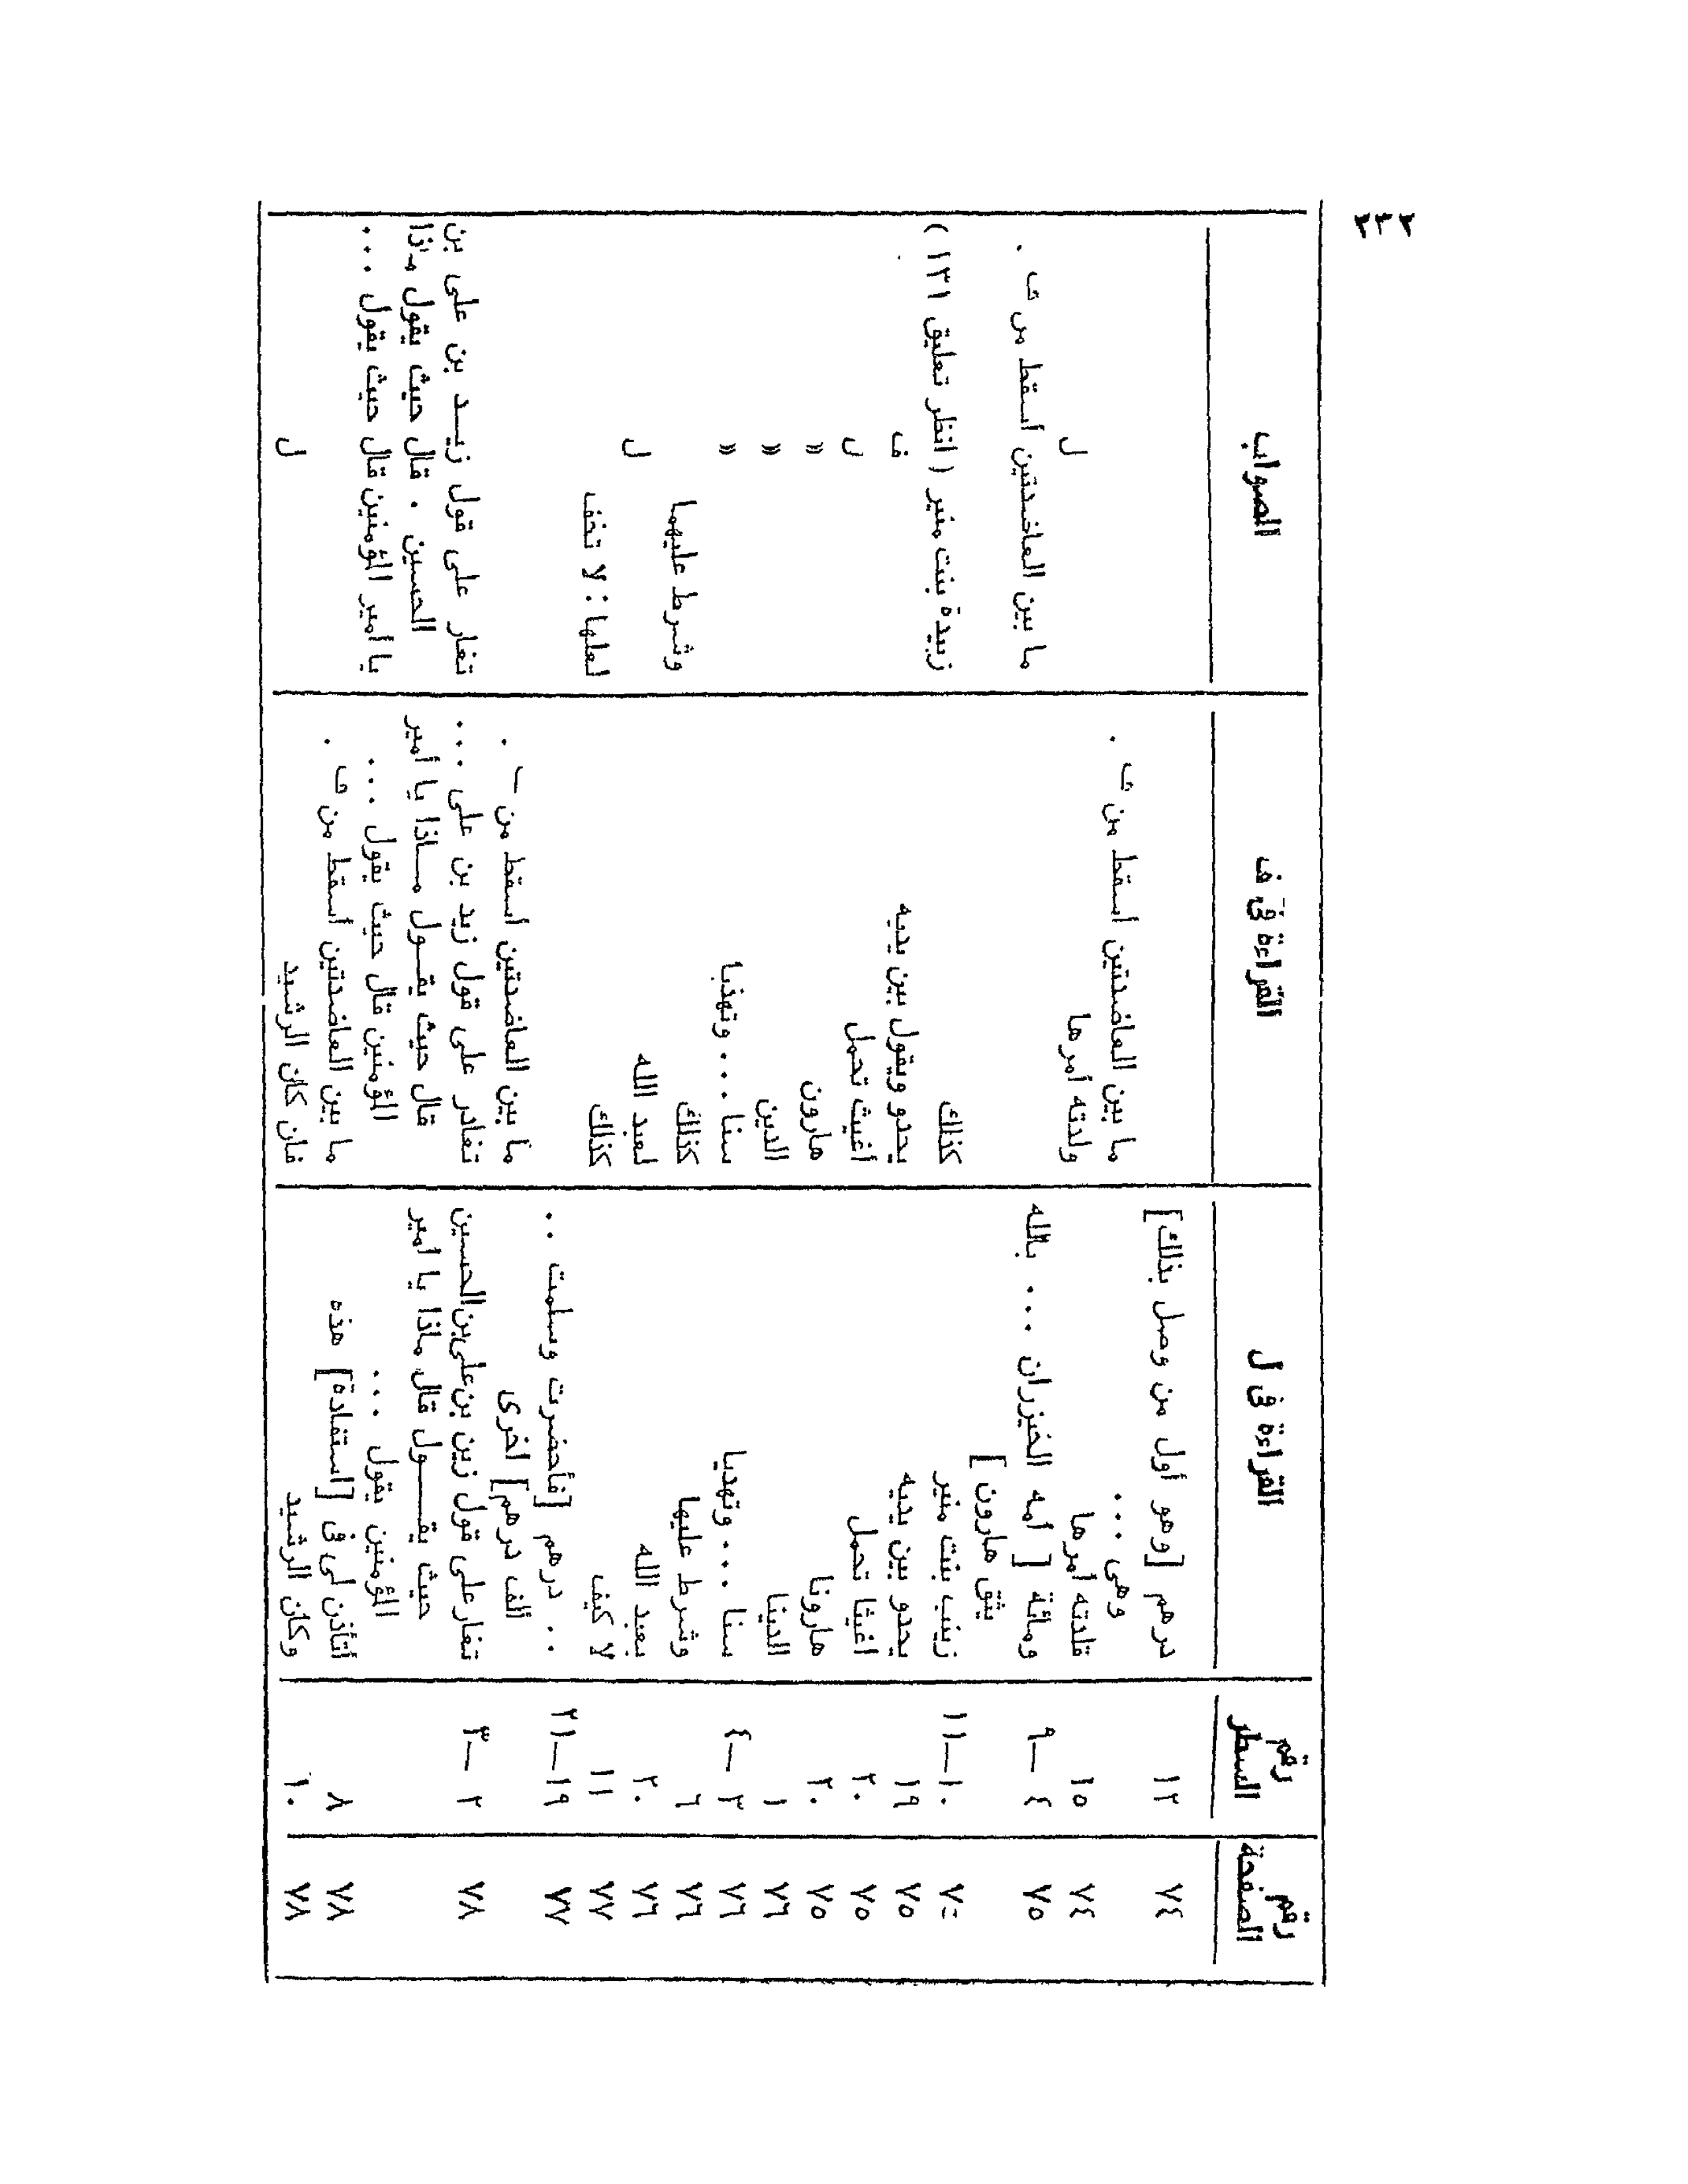 ٢٣٢
رقم الصفحة | رقم السطر | القراءة فى ل | القراءة فى ف | الصواب
٧٤ | ١٢ | درهم [وهو أول من وصل بذلك] | ما بين العاضدتين أسقط من ف .
وهى ...
٧٤ | ١٥ | قلدته أمرها | ولدته أمرها | ل
٧٥ | ٤ — ٩ | ومائة [ أمه الخيزران ... بالله | | ما بين العاضدتين أسقط من ف .
يثق هارون ]
٧٥ | ١٠—١١ | زينب بنت منير | كذلك | زبيدة بنت منير ( انظر تعليق ١٣١ )
٧٥ | ١٩ | يحدو بين يديه | يحدو ويقول بين يديه | ف
٧٥ | ٢٠ | اغيثا تحمل | أغيث تحمل | ل
٧٥ | ٢٠ | هارونا | هارون | »
٧٦ | ١ | الدينا | الدين | »
٧٦ | ٣ — ٤ | سنا ... وتهديا | سنا ... وتهذبا | »
٧٦ | ٦ | وشرط عليها | كذلك | وشرط عليهما
٧٦ | ٢٠ | بعبد الله | لعبد الله | ل
٧٧ | ١١ | لا كيف | كذلك | لعلها : لا تخف
٧٧ | ١٩—٢١ | .. درهم [فأحضرت وسلمت ..
ألف درهم] أخرى | ما بين العاضدتين أسقط من .
٧٨ | ٢ — ٣ | تغار على قول زين بن على بن الحسين | تغادر على قول زيد بن على ... | تغار على قول زيد بن على بن
حيث يقول قال ماذا يا أمير | قال حيث يقول ماذا يا أمير | الحسين . قال حيث يقول ماذا
المؤمنين يقول ... | المؤمنين قال حيث يقول ... | يا أمير المؤمنين قال حيث يقول ...
٧٨ | ٨ | أتأذن لى فى [استفادة] هذه | ما بين العاضدتين أسقط من ف .
٧٨ | ١٠ | وكان الرشيد | فان كان الرشيد | ل